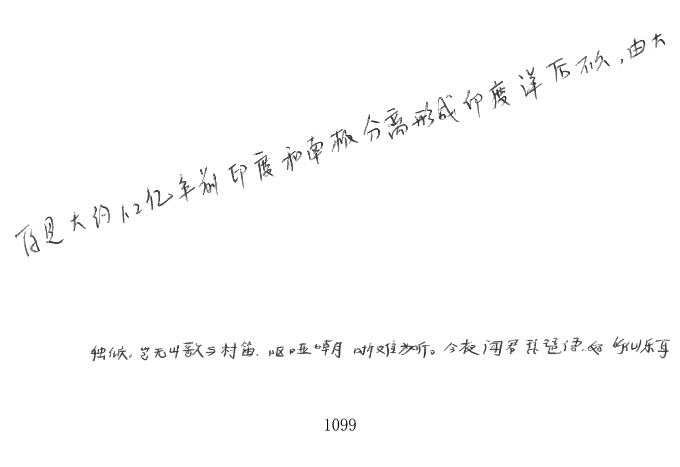 而是大约1.2亿年前印度和南极分离形成印度洋后不久,由大
独伤。岂无山歌与村笛.呕哑嘲哳难为听。今夜闻君琵琶语.如听仙乐耳
1099